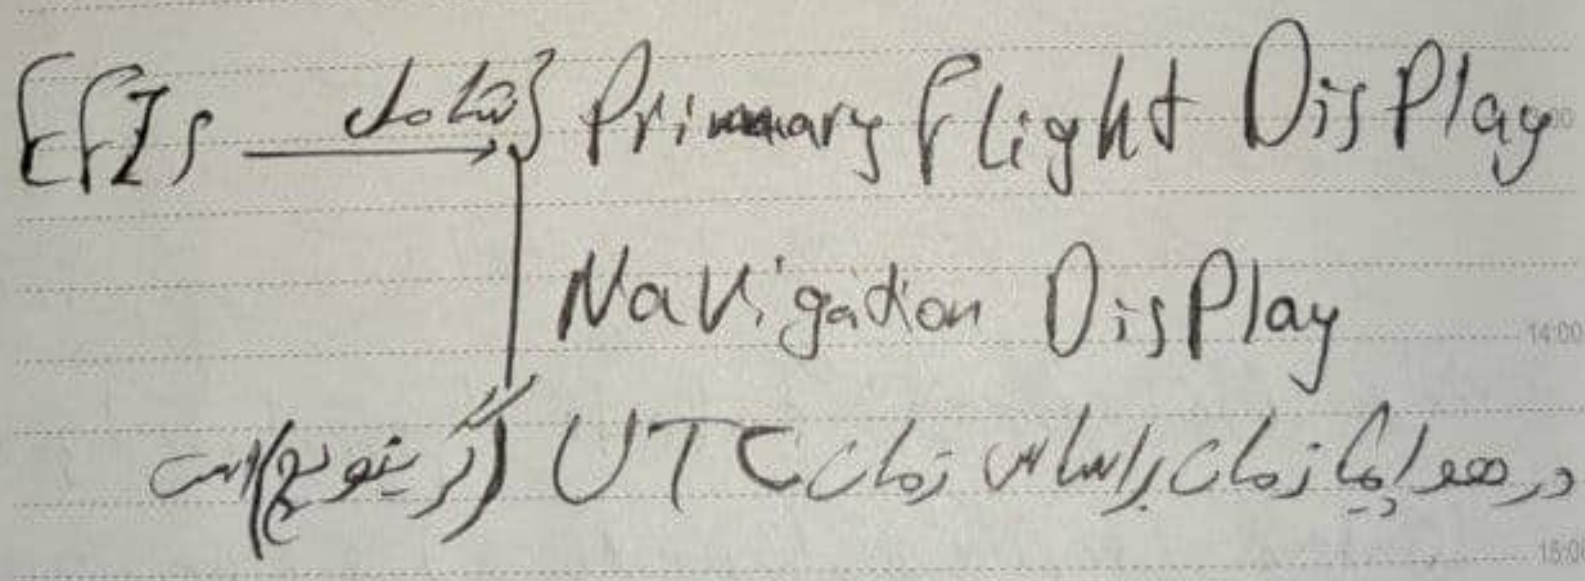 EFIS شامل Primary Flight Display
Navigation Display
در هواپیما زمان براساس زمان UTC (گرینویچ) است
14:00
15:00